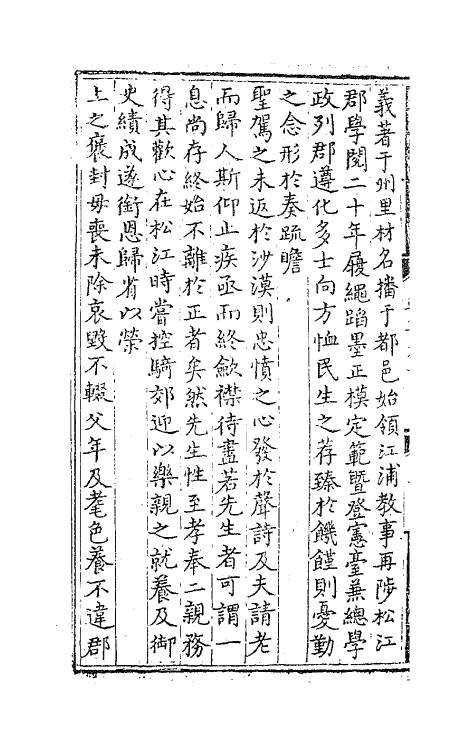 義著于州里材名播于都邑始領江浦教事再陟松江
郡學閱二十年履繩蹈墨正模定範暨登憲臺兼總學
政列郡遵化多士向方恤民生之荐臻於饑饉則憂勤
之念形於奏疏瞻
聖駕之未返於沙漠則忠憤之心發於聲詩及夫請老
而歸人斯仰止疾亟而終斂襟待盡若先生者可謂一
息尚存終始不離於正者矣然先生性至孝奉二親務
得其歡心在松江時嘗控騎郊迎以樂親之就養及御
史績成遂銜恩歸省以榮
上之褒封毋喪未除哀毀不輟父年及耄色養不違郡